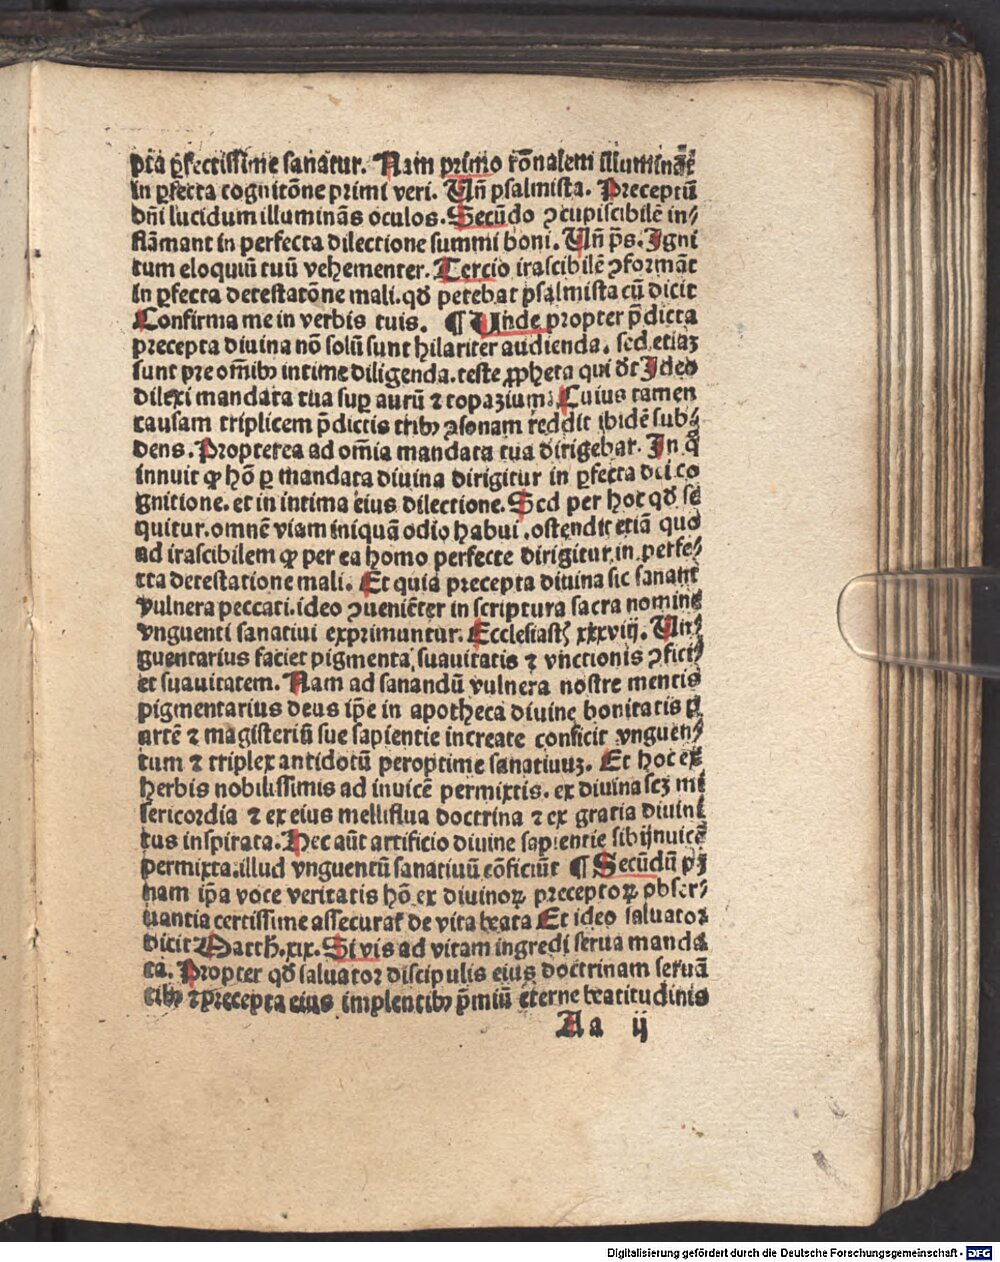 pta ꝑfectissime sanatur. Nam primo rõnalem illuminãt
in ꝑfecta cognitõne primi veri. Uñ psalmista. Preceptũ
dñi lucidum illuminãs oculos. Secũdo ꝯcupiscibilẽ in⸗
flãmant in perfecta dilectione summi boni. Uñ p̃s. Igni
tum eloquiũ tuũ vehementer. Tercio irascibilẽ ꝯformãt
in ꝑfecta detestatõne mali. qđ petebat psalmista cũ dicit
Confirma me in verbis tuis. ¶ Unde propter p̃dicta
precepta diuina nõ solũ sunt hilariter audienda. sed etiaꝫ
sunt pre omĩbꝰ intime diligenda. teste ꝓpheta qui dt̃ Ideo
dilexi mandata tua suꝑ aurũ ⁊ topazium: Cuius tamen
causam triplicem p̃dictis tribꝰ ꝯsonam reddit ibidẽ sub⸗
dens. Propterea ad om̃ia mandata tua dirigebar. In q̃
innuit ꝙ hõ ꝑ mandata diuina dirigitur in ꝑfecta dei co
gnitione. et in intima eius dilectione. Sed per hoc qđ se
quitur. omnẽ viam iniquã odio habui. ostendit etiã quo
ad irascibilem ꝙ per ea homo perfecte dirigitur in perfe⸗
cta detestatione mali. Et quia precepta diuina sic sanant
vulnera peccati. ideo ꝯueniẽter in scriptura sacra nomine
vnguenti sanatiui exprimuntur. Ecclesiastꝭ xxxviij. Un⸗
guentarius faciet pigmenta suauitatis ⁊ vnctionis ꝯficiꝫ
et suauitatem. Nam ad sanandũ vulnera nostre mentis
pigmentarius deus ip̃e in apotheca diuine bonitatis ꝑ
artẽ ⁊ magisteriũ sue sapientie increate conficit vnguen⸗
tum ⁊ triplex antidotũ peroptime sanatiuuꝫ. Et hoc ex
herbis nobilissimis ad inuicẽ permixtis. ex diuina scꝫ mi
sericordia ⁊ ex eius melliflua doctrina ⁊ ex gratia diuini
tus inspirata. Hec aũt artificio diuine sapientie sibijnuicẽ
permixta. illud vnguentũ sanatiuũ cõficiũt ¶ Secũdũ pꝫ
nam ip̃a voce veritatis hõ ex diuinoꝝ preceptoꝝ obser⸗
uantia certissime assecurat᷑ de vita beata Et ideo saluator
dicit Matth. xix. Si vis ad vitam ingredi serua manda
ta. Propter qđ saluator discipulis eius doctrinam seruã
tibꝰ ⁊ precepta eius implentibꝰ p̃miũ eterne beatitudinis
Aa ij
Digitalisierung gefördert durch die Deutsche Forschungsgemeinschaft - DFG